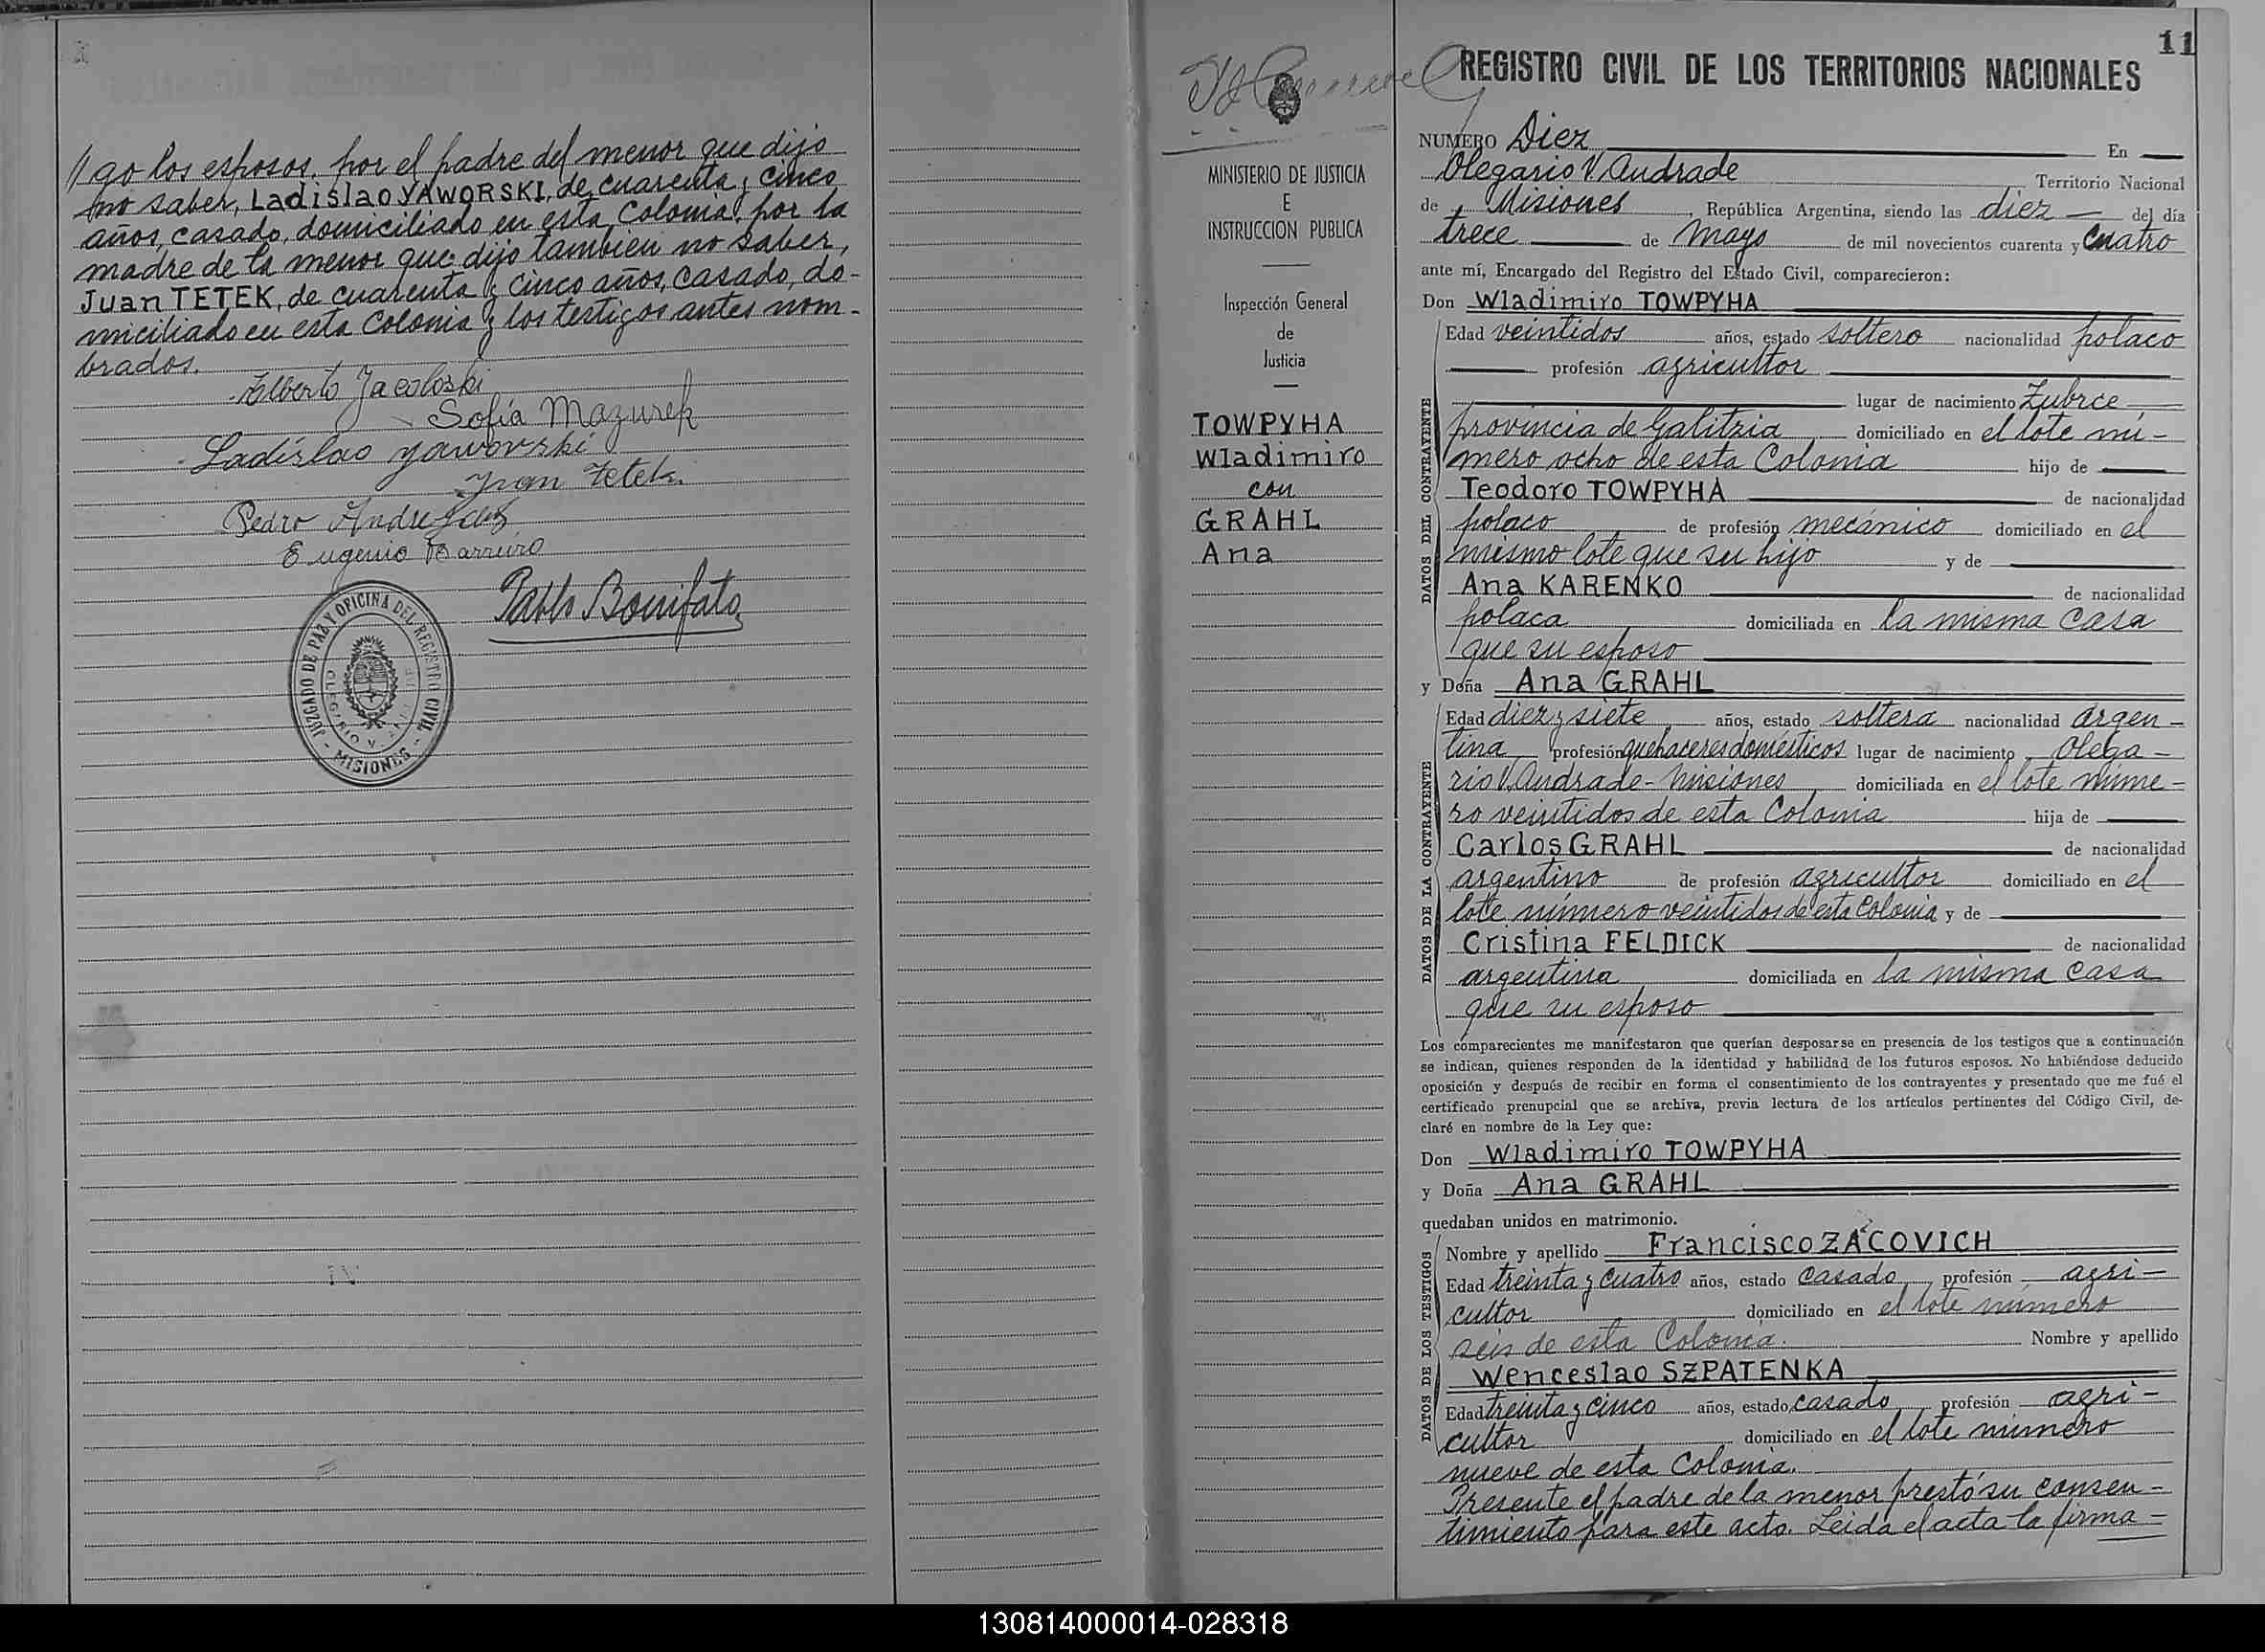 //go los esposos. por el padre del menor que dijo
no saber, Ladislao YAWORSKI, de cuarenta y cinco
años, casado, domiciliado en esta Colonia, por la
madre de la menor que dijo tambien no saber,
Juan TETEK, de cuarenta y cinco años, casado, do-
miciliado en esta Colonia y los testigos antes nom-
brados.
Alberto Jacoloski
Sofía Mazurek
Ladislao Yaworski
Juan Tetek.
Pedro
Eugenio Barreiro
Pablo Bonifato
JUZGADO DE PAZ Y OFICINA DEL REGISTRO CIVIL
- MISIONES -
11
REGISTRO CIVIL DE LOS TERRITORIOS NACIONALES
MINISTERIO DE JUSTICIA
E
INSTRUCCION PUBLICA
Inspección General
de
Justicia
TOWPYHA
Wladimiro
con
GRAHL
Ana
NUMERO Diez En
Olegario V. Andrade Territorio Nacional
de Misiones, República Argentina, siendo las diez del día
trece de Mayo de mil novecientos cuarenta y Cuatro
ante mí, Encargado del Registro del Estado Civil, comparecieron:
Don Wladimiro TOWPYHA
DATOS DEL CONTRAYENTE
Edad veintidos años, estado soltero nacionalidad polaco
profesión agricultor
lugar de nacimiento Zubrce
provincia de Galitzia domiciliado en el lote nú-
mero ocho de esta Colonia hijo de
Teodoro TOWPYHA de nacionalidad
polaco de profesión mecánico domiciliado en el
mismo lote que su hijo y de
Ana KARENKO de nacionalidad
polaca domiciliada en la misma casa
que su esposo
y Doña Ana GRAHL
DATOS DE LA CONTRAYENTE
Edad diez y siete años, estado soltera nacionalidad argen-
tina profesión quehaceres domésticos lugar de nacimiento Olega-
rio V. Andrade - Misiones domiciliada en el lote núme-
ro veintidos de esta Colonia hija de
Carlos GRAHL de nacionalidad
argentino de profesión agricultor domiciliado en el
lote número veintidos de esta Colonia y de
Cristina FELDICK de nacionalidad
argentina domiciliada en la misma casa
que su esposo
Los comparecientes me manifestaron que querían desposarse en presencia de los testigos que a continuación
se indican, quienes responden de la identidad y habilidad de los futuros esposos. No habiéndose deducido
oposición y después de recibir en forma el consentimiento de los contrayentes y presentado que me fué el
certificado prenupcial que se archiva, previa lectura de los artículos pertinentes del Código Civil, de-
claré en nombre de la Ley que:
Don Wladimiro TOWPYHA
y Doña Ana GRAHL
quedaban unidos en matrimonio.
DATOS DE LOS TESTIGOS
Nombre y apellido Francisco ZACOVICH
Edad treinta y cuatro años, estado casado, profesión agri-
cultor domiciliado en el lote número
seis de esta Colonia. Nombre y apellido
Wenceslao SZPATENKA
Edad treinta y cinco años, estado casado, profesión agri-
cultor domiciliado en el lote número
nueve de esta Colonia.
Presente el padre de la menor prestó su consen-
timiento para este acto. Leida el acta la firma-
130814000014-028318